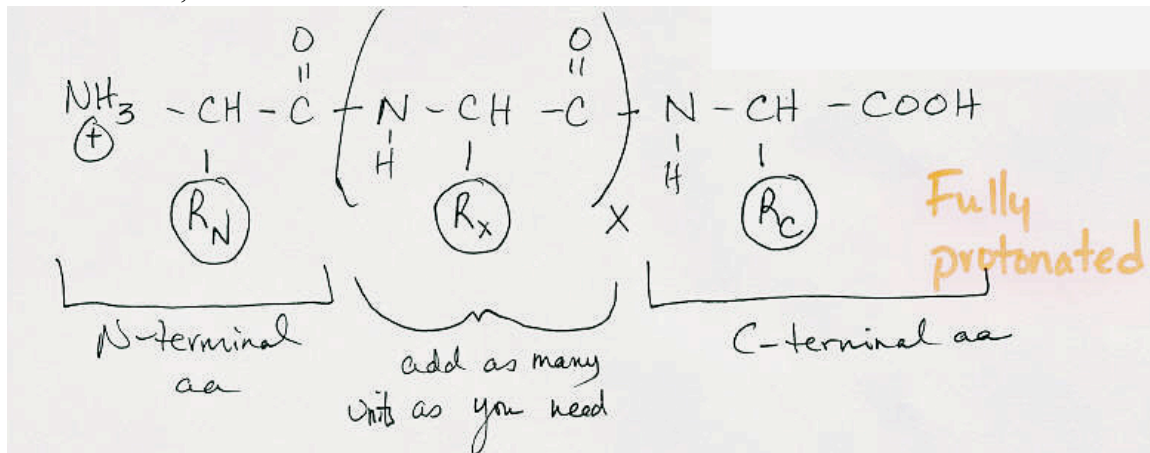 O O
|| ||
NH3 - CH - C - ( N - CH - C ) - N - CH - COOH
+ | | | | |
H H
RN Rx X Rc
Fully
protonated
N-terminal
aa
add as many
units as you need
C-terminal aa